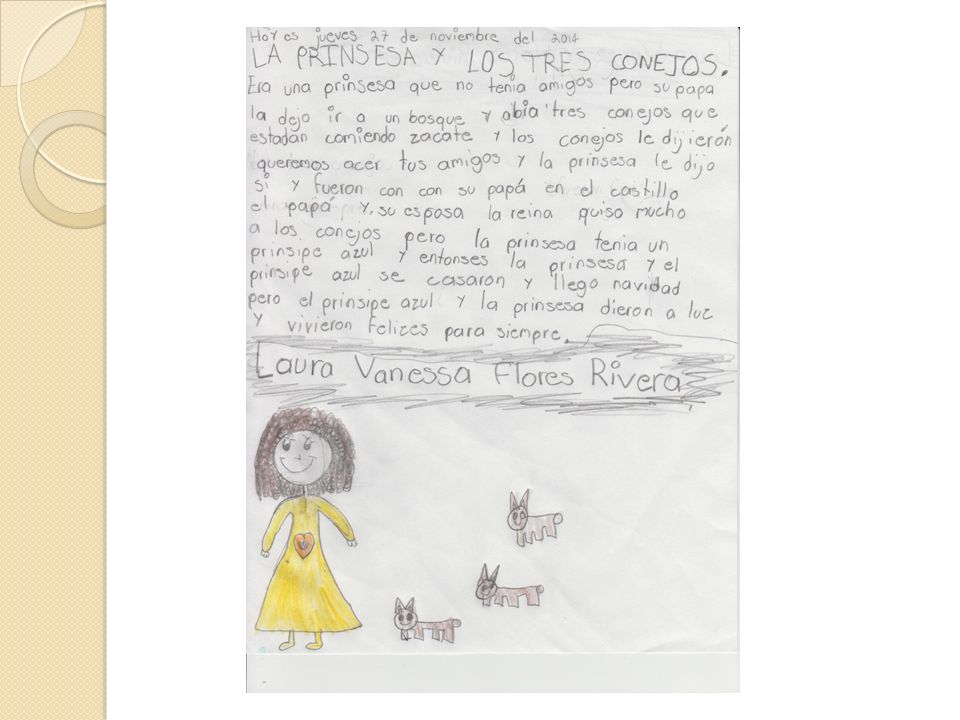 Hoy es jueves 27 de noviembre del 2014
LA PRINSESA Y LOS TRES CONEJOS.
Era una prinsesa que no tenia amigos pero su papa
la dejo ir a un bosque y abia tres conejos que
estadan comiendo zacate y los conejos le dijierón
queremos acer tus amigos y la prinsesa le dijo
si y fueron con con su papá en el castillo
el papá y su esposa la reina quiso mucho
a los conejos pero la prinsesa tenia un
prinsipe azul y entonses la prinsesa y el
prinsipe azul se casaron y llego navidad
pero el prinsipe azul y la prinsesa dieron a luz
y vivieron felizes para siempre.
Laura Vanessa Flores Rivera